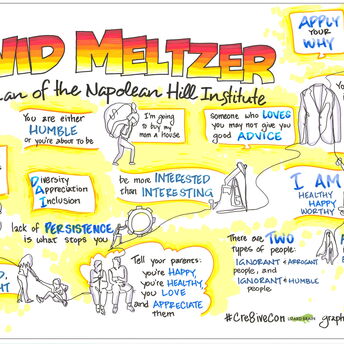 VID MELTZER
man of the Napolean Hill Institute
APPLY
YOUR
WHY
You are either
HUMBLE
or you're about to be
I'm going
to buy my
mom a House
someone who LOVES
you may not give you
good ADVICE
Diversity
Appreciation
Inclusion
be more INTERESTED
than INTERESTING
I AM
HEALTHY
HAPPY
WORTHY
lack of PERSISTENCE
is what stops you
Tell your parents:
you're HAPPY,
you're HEALTHY,
you LOVE
and APPRECIATE
them
There are TWO
types of people:
IGNORANT & ARROGANT
people, and
IGNORANT & HUMBLE
people
#Cre8iveCon
graph